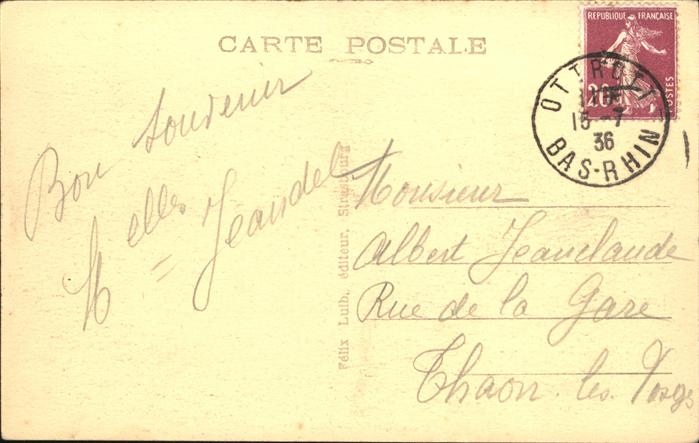 CARTE POSTALE
Bon souvenir
Melles Jeandel
Félix Luib, éditeur, Strasbourg
RÉPUBLIQUE FRANÇAISE
20
POSTES
OTTROTT
15-7
36
BAS-RHIN
Monsieur
Albert Jeanclaude
Rue de la Gare
Thaon-les-Vosges